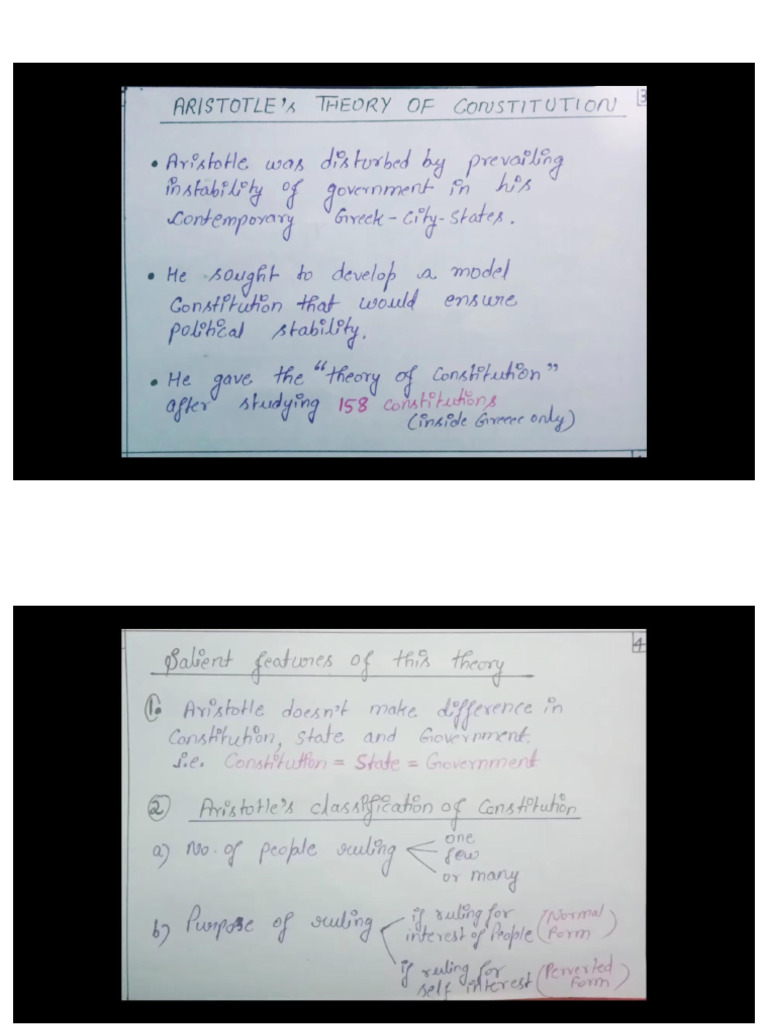 3
ARISTOTLE's THEORY OF CONSTITUTION
• Aristotle was disturbed by prevailing
instability of government in his
contemporary Greek-City-States.
• He sought to develop a model
Constitution that would ensure
political stability.
• He gave the "theory of Constitution"
after studying 158 constitutions
(inside Greece only)
4
Salient features of this theory
1. Aristotle doesn't make difference in
Constitution, State and Government.
i.e. Constitution = State = Government
2 Aristotle's classification of Constitution
a) No. of people ruling
one
few
or many
b) Purpose of ruling
if ruling for
interest of People (Normal
Form)
if ruling for
self interest (Perverted
Form)